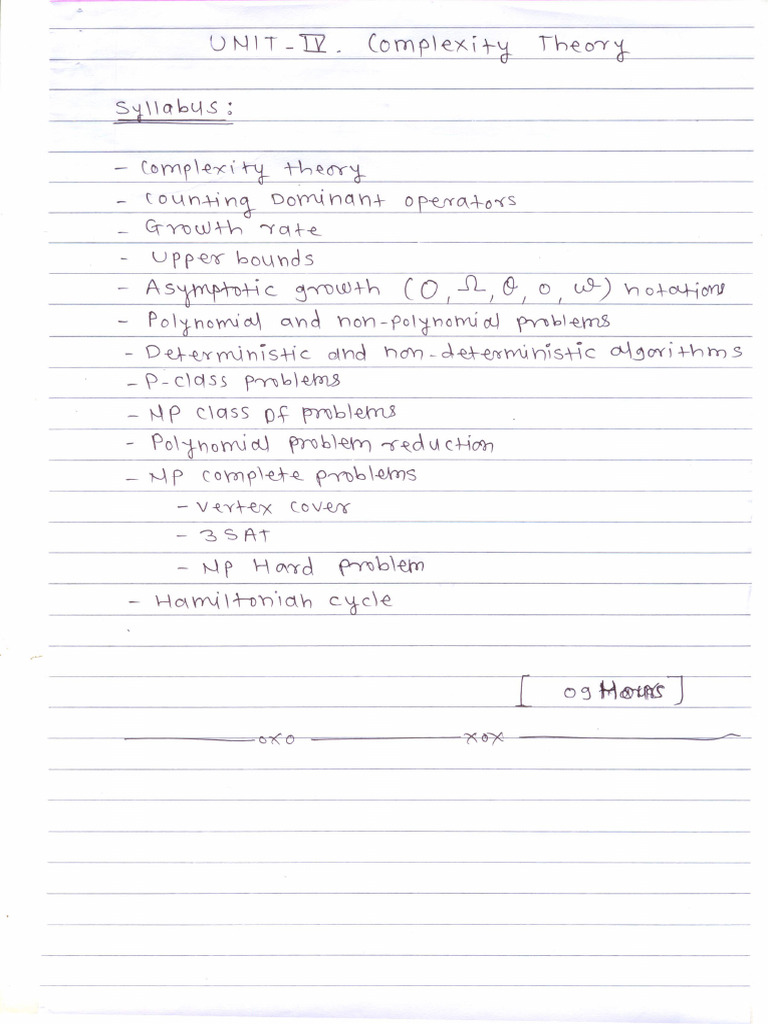 UNIT-IV. Complexity Theory
Syllabus:
- Complexity theory
- Counting Dominant operators
- Growth rate
- Upper bounds
- Asymptotic growth (O, Ω, θ, o, ω) notations
- Polynomial and non-polynomial problems
- Deterministic and non-deterministic algorithms
- P-class problems
- NP class of problems
- Polynomial problem reduction
- NP complete problems
- vertex cover
- 3 SAT
- NP Hard problem
- Hamiltonian cycle
[ 09 Hours ]
oxo xox